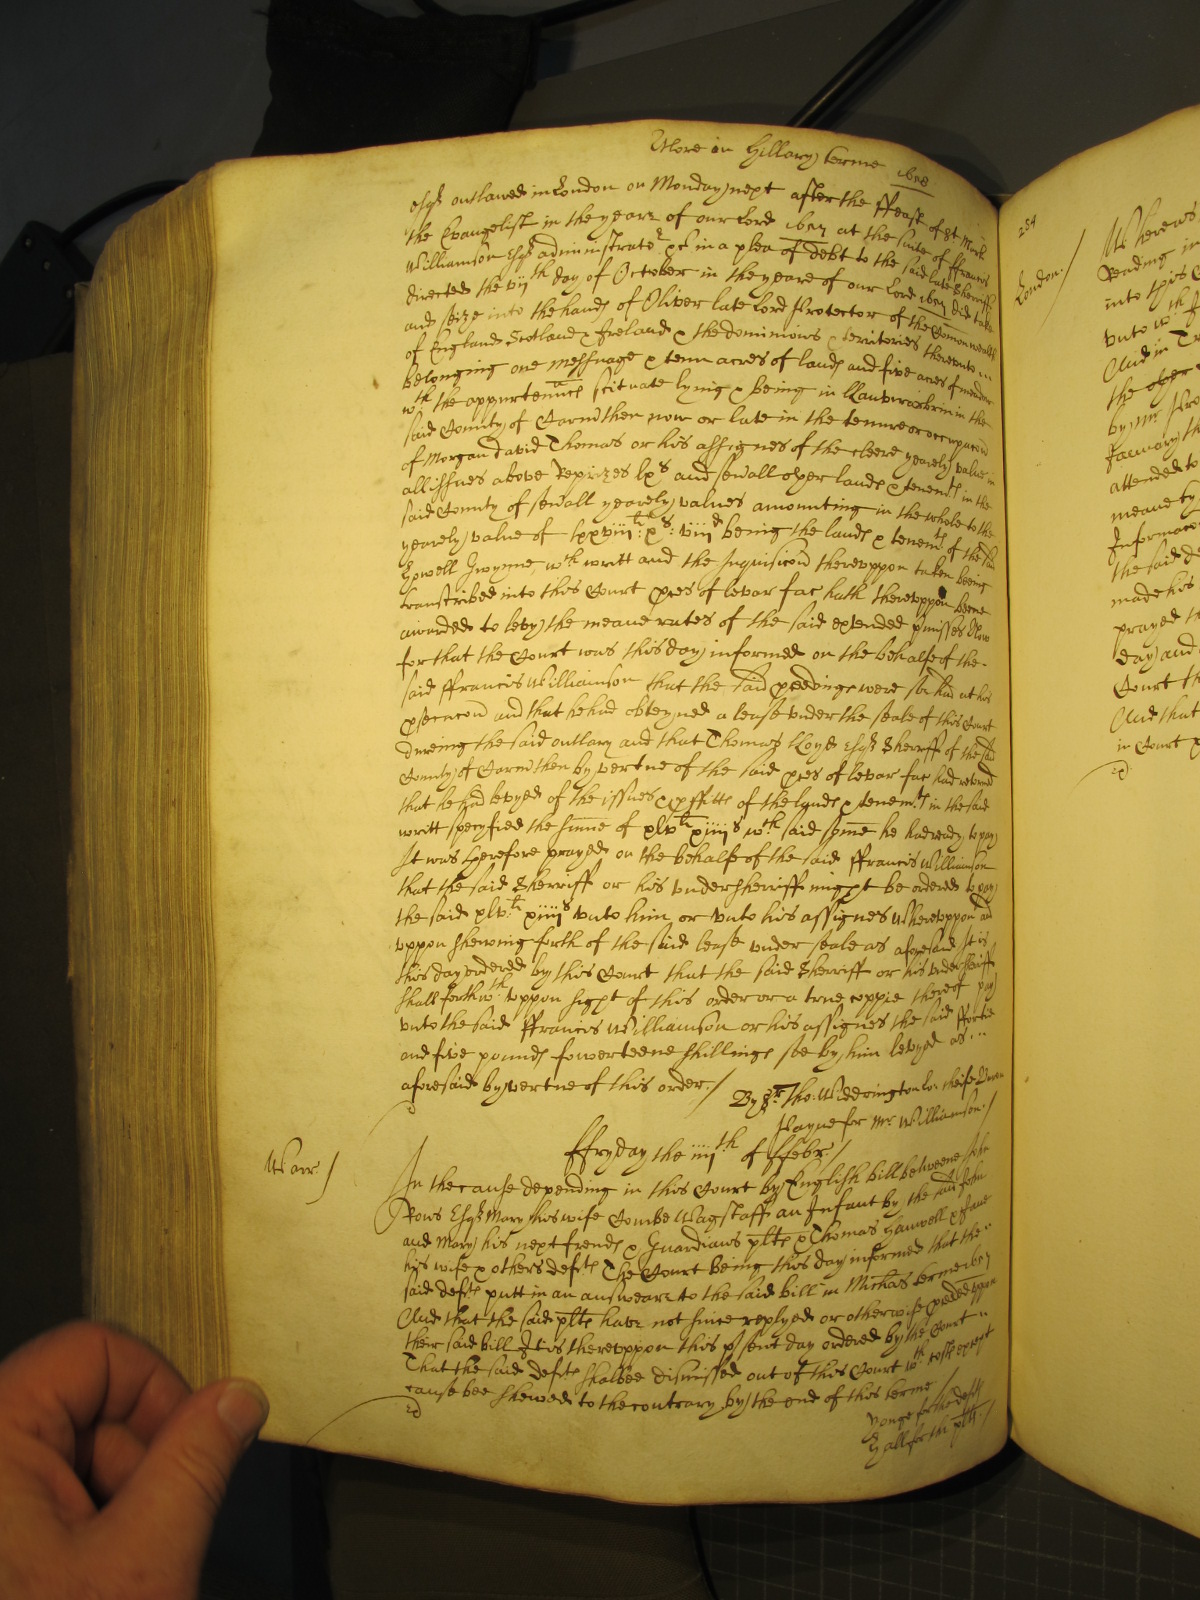 More in Hillary terme 1658
esqr outlawed in London on Monday next after the ffeast of St Mark
the Evangelist in the yeare of our Lord 1657 at the suite of ffrancis
Williamson Esqr administrator &c in a plea of debt to the said late Sherriffe
directed the vijth day of October in the yeare of our Lord 1657 did take
and seize into the hands of Oliver late Lord Protector of the Comonwealth
of England Scotland & Ireland & the dominions & territories thereunto
belonging one messuage & tenn acres of land and five acres of meadow
wth the appurtennces scituate lying & being in in the
said County of Carmthen now or late in the tenure or occupacon
of Morgan David Thomas or his assignes of the cleere yearely value in
all issues above reprizes lxs and sevall other lands & tenemts in the
said County of sevall yearely values amounting in the whole to the
yearely value of lxxviijli xs viijd being the lands & tenemts of the said
Howell Gwynne wch writt and the Inquisicon thereuppon taken being
transcribed into this Court pces of levar fac hath thereuppon beene
awarded to levy the meane rates of the said extended pmisses Now
for that the Court was this day informed on the behalfe of the
said ffrancis Williamson that the said pceedings were soe had at his
psecucon and that he had obteyned a lease under the seale of this Court
dureing the said outlary and that Thomas Lloyd Esqr Sherriff of the said
County of Carmthen by vertue of the said pces of levar fac had retorned
that he had levyed of the issues & pffitts of the lands & tenemts in the said
writt specyfied the sume of xlvli xiiijs wch said some he had ready to pay
It was therefore prayed on the behalfe of the said ffrancis Williamson
that the said Sherriff or his undersherriff might be ordered to pay
the said xlvli xiiijs unto him or unto his assignes Whereuppon and
uppon shewing forth of the said lease under seale as aforesaid It is
this day ordered by this Court that the said Sherriff or his undersherriff
shall forthwth uppon sight of this order or a true coppie thereof pay
unto the said ffrancis Williamson or his assignes the said ffortie
and five pounds fowerteene shillings soe by him levyed as
aforesaid by vertue of this order /
By Sr Tho: Widdrington Lo: cheife Baron
Payne for Mr Williamson /
ffryday the iiijth of ffebr /
Warr /
In the cause depending in this Court by English bill betweene John
Rows Esqr Mary his wife Combe Wagstaff an Infant by the said John
and Mary his next frends & Guardians plts & Thomas Hanwell & Jane
his wife & others defts The Court being this day informed that the
said defts putt in an answeare to the said bill in Michas terme 1657
And that the said plts have not since replyed or otherwise pceeded uppon
their said bill It is thereuppon this psent day ordered by the Court
That the said defts shalbee dismissed out of this Court wth costs except
cause bee shewed to the contrary by the end of this terme /
yonge for the defts
Hall for the plts /
284
London /
Whereas
into this
unto wch
And in
the other
by Mr
January
attended to
meane
the said
made his
prayed
day and
Court
And that
in Court